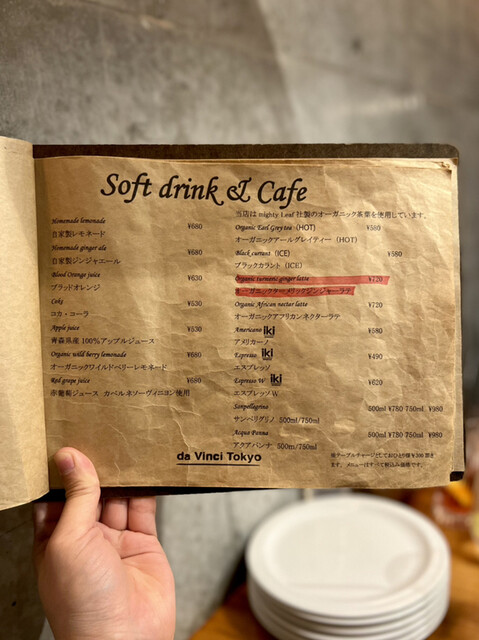 Soft drink & Cafe
Homemade lemonade ¥680
自家製レモネード
Homemade ginger ale ¥680
自家製ジンジャエール
Blood Orange juice ¥630
ブラッドオレンジ
Coke ¥530
コカ・コーラ
Apple juice ¥530
青森県産 100%アップルジュース
Organic wild berry lemonade ¥680
オーガニックワイルドベリーレモネード
Red grape juice ¥680
赤葡萄ジュース カベルネソーヴィニヨン使用
当店は mighty Leaf 社製のオーガニック茶葉を使用しています。
Organic Earl Grey tea (HOT) ¥580
オーガニックアールグレイティー (HOT)
Black currant (ICE) ¥580
ブラックカラント (ICE)
Organic turmeric ginger latte ¥720
オーガニックターメリックジンジャーラテ
Organic African nectar latte ¥720
オーガニックアフリカンネクターラテ
Americano iki ¥580
アメリカーノ
Espresso iki ¥490
エスプレッソ
Espresso W iki ¥620
エスプレッソ W
Sanpellegrino 500ml ¥780 750ml ¥980
サンペリグリノ 500ml/750ml
Acqua Panna 500ml ¥780 750ml ¥980
アクアパンナ 500ml/750ml
da Vinci Tokyo
※テーブルチャージとしておひとり様¥300 頂きます。メニューはすべて税込み価格です。